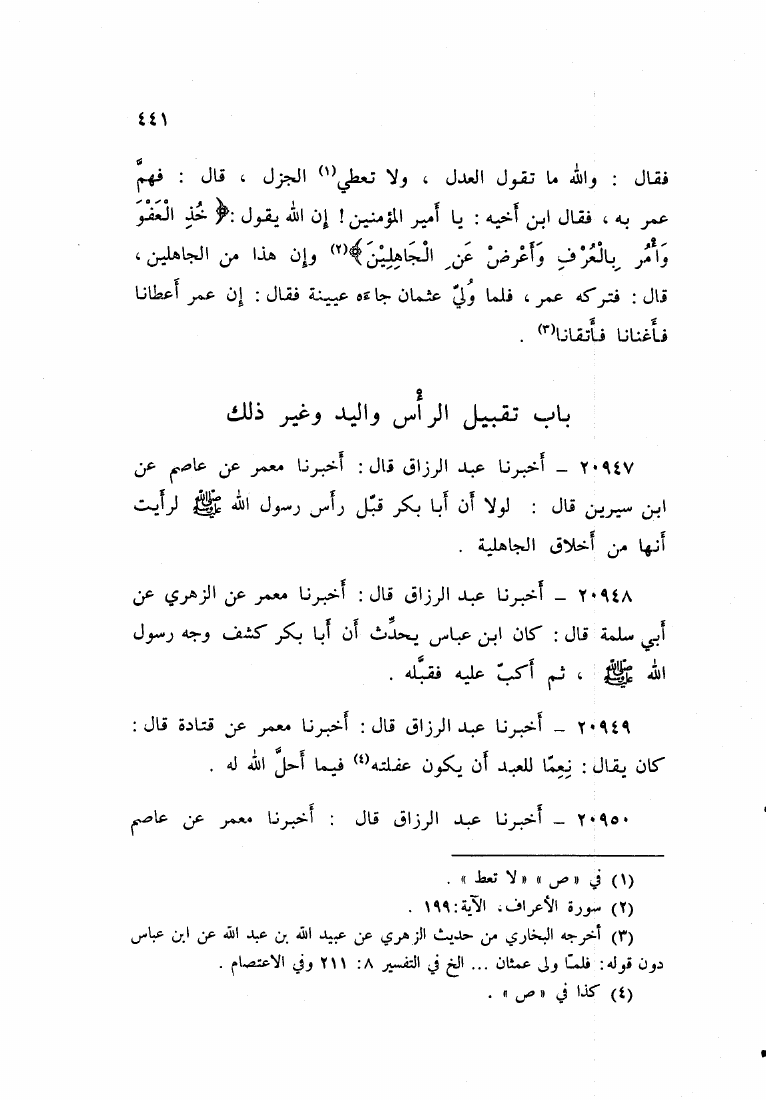 ٤٤١
فقال : والله ما تقول العدل ، ولا تعطي(١) الجزل ، قال : فهمَّ
عمر به ، فقال ابن أخيه : يا أمير المؤمنين ! إن الله يقول :﴿ خُذِ الْعَفْوَ
وَأْمُر بِالْعُرْفِ وَأَعْرِضْ عَنِ الْجَاهِلِيْنَ﴾(٢) وإن هذا من الجاهلين ،
قال : فتركه عمر ، فلما وُليّ عثمان جاءه عيينة فقال : إن عمر أعطانا
فأغنانا فأتقانا(٣) .
باب تقبيل الرأس واليد وغير ذلك
٢٠٩٤٧ – أخبرنا عبد الرزاق قال : أخبرنا معمر عن عاصم عن
ابن سيرين قال : لولا أن أبا بكر قبّل رأس رسول الله ﷺ لرأيت
أنها من أخلاق الجاهلية .
٢٠٩٤٨ – أخبرنا عبد الرزاق قال : أخبرنا معمر عن الزهري عن
أبي سلمة قال : كان ابن عباس يحدِّث أن أبا بكر كشف وجه رسول
الله ﷺ ، ثم أكبّ عليه فقبَّله .
٢٠٩٤٩ – أخبرنا عبد الرزاق قال : أخبرنا معمر عن قتادة قال :
كان يقال : نِعِمّا للعبد أن يكون عفلته(٤) فيما أحلَّ الله له .
٢٠٩٥٠ – أخبرنا عبد الرزاق قال : أخبرنا معمر عن عاصم
(١) في « ص » « لا تعط » .
(٢) سورة الأعراف، الآية: ١٩٩ .
(٣) أخرجه البخاري من حديث الزهري عن عبيد الله بن عبد الله عن ابن عباس
دون قوله: فلمّا ولى عمثان ... الخ في التفسير ٨: ٢١١ وفي الاعتصام .
(٤) كذا في « ص » .